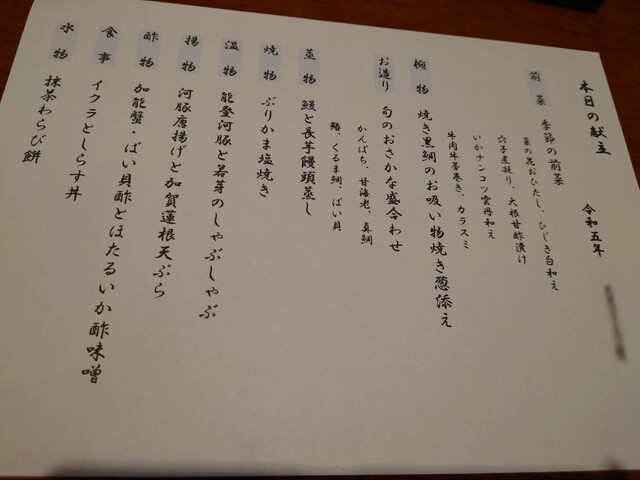 本日の献立 令和五年
前菜 季節の前菜
菜の花おひたし、ひじき白和え
穴子煮凝り、大根甘酢漬け
いかナンコツ雲丹和え
牛肉牛蒡巻き、カラスミ
椀物 焼き黒鯛のお吸い物焼き葱添え
お造り 旬のおさかな盛合わせ
かんぱち、甘海老、真鯛
鰆、くるま鯛、ばい貝
蒸物 鰻と長芋饅頭蒸し
焼物 ぶりかま塩焼き
温物 能登河豚と若芽のしゃぶしゃぶ
揚物 河豚唐揚げと加賀蓮根天ぷら
酢物 加能蟹・ばい貝酢とほたるいか酢味噌
食事 イクラとしらす丼
水物 抹茶わらび餅